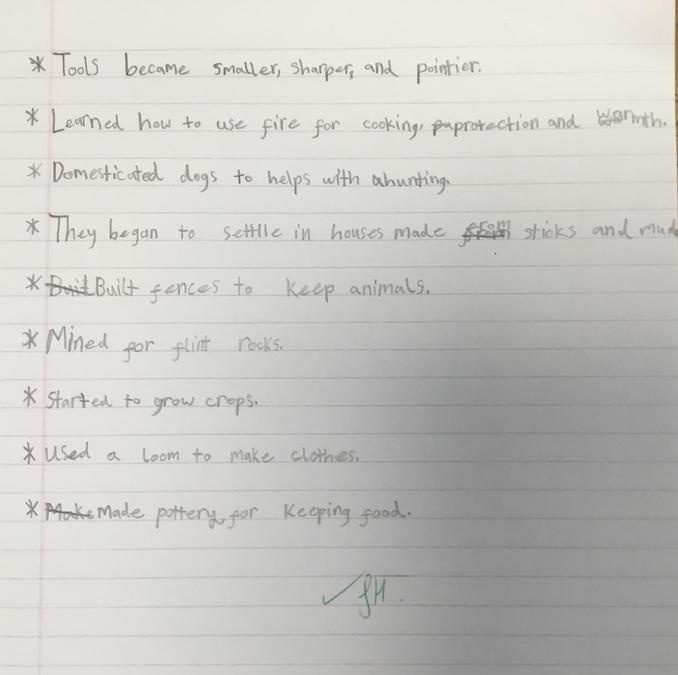 * Tools became smaller, sharper, and pointier.
* Learned how to use fire for cooking, protection and warmth.
* Domesticated dogs to helps with hunting.
* They began to settlle in houses made from sticks and mud
* Built fences to keep animals.
* Mined for flint rocks.
* Started to grow crops.
* Used a loom to make clothes.
* Made pottery for keeping food.